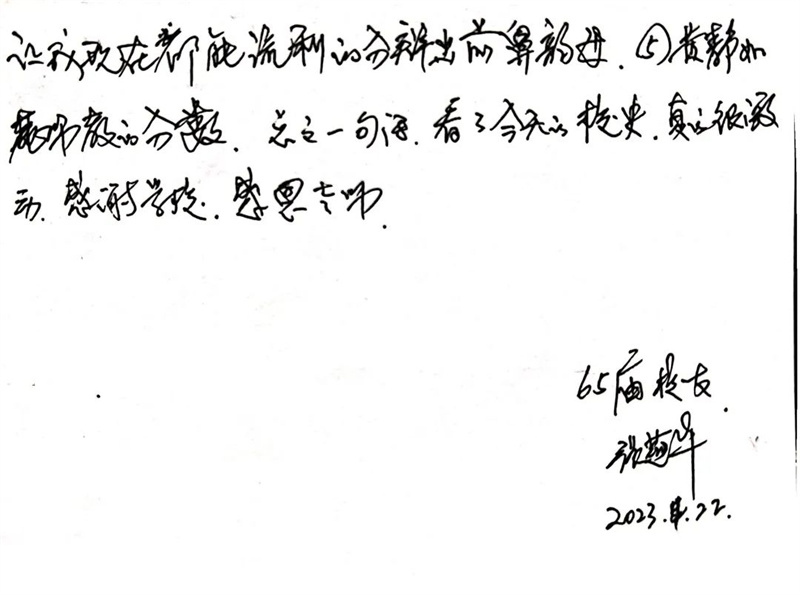 让我现在都能流利的分辨出前鼻韵母.⑤黄静如
教师教的分数.总之一句话.看了今天的校史.真的很激
动.感谢学校.感恩老师.
65届校友.
张
2023.11.22.